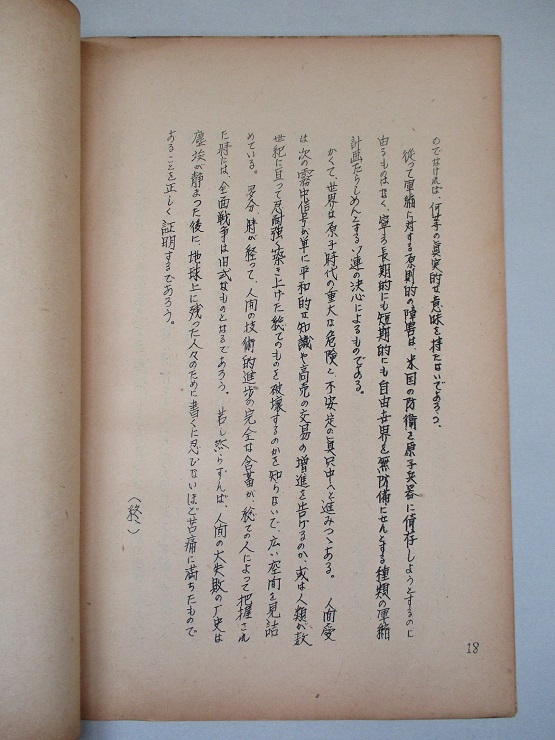 のでなければ、何等の眞実的な意味を持たないであろう、
従って軍縮に対する原則的の障害は、米国の防衛を原子兵器に倚存しようとするのに
由るものはなく、寧ろ長期的にも短期的にも自由世界を無防備にせんとする種類の軍縮
計画たらしめんとするソ連の決心によるものである。
かくて、世界は原子時代の重大な危険と不安定の眞只中へと進みつゝある。 人間愛
は次の霧中信号が単に平和的な知識や商売の交易の増進を告げるのか、或は人類が数
世紀に亘って忍耐強く築き上げた総てのものを破壊するのかを知らないで、広い空間を見詰
めている。 多分 時が経って、人間の技術的進歩の完全な含蓄が、総ての人によって把握され
た時には、全面戦争は旧式なものとなるであろう。 若し然らずんば、人間の大失敗の厂史は
塵埃が静まった後に、地球上に残った人々のために書くに忍びないほど苦痛に満ちたもので
あることを正しく証明するであろう。
(終)
18